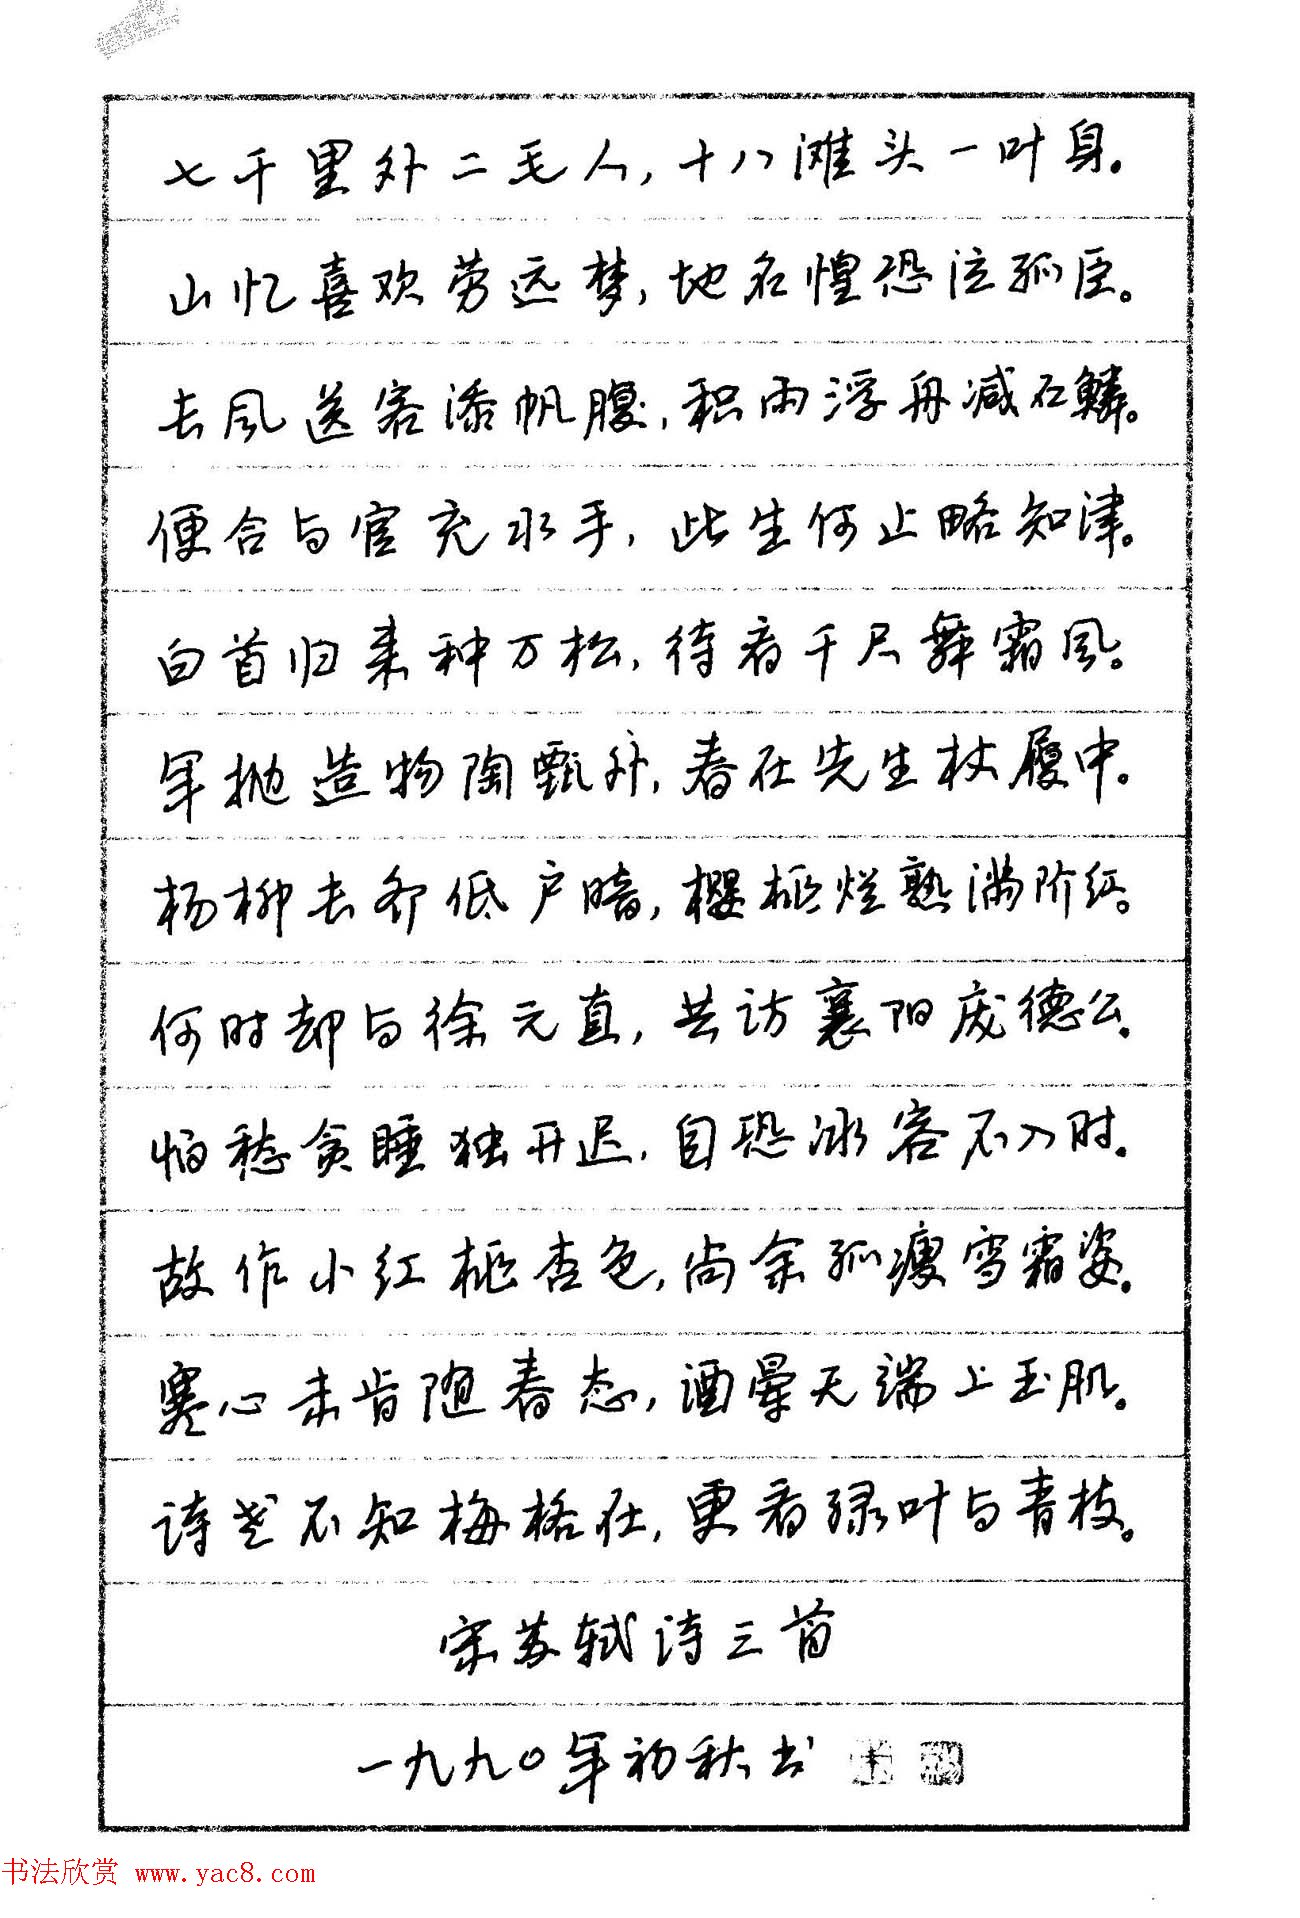 七千里外二毛人，十八滩头一叶身。
山忆喜欢劳远梦，地名惶恐泣孤臣。
长風送客添帆腹，积雨浮舟减石鳞。
便合与官充水手，此生何止略知津。
白首归来种万松，待看千尺舞霜風。
年抛造物陶甄外，春在先生杖履中。
杨柳长齐低户暗，樱桃烂熟满阶红。
何时却与徐元直，共访襄阳庞德公。
怕愁贪睡独开迟，自恐冰容不入时。
故作小红桃杏色，尚余孤瘦雪霜姿。
寒心未肯随春态，酒晕无端上玉肌。
诗老不知梅格在，更看绿叶与青枝。
宋苏轼诗三首
一九九〇年初秋书
书法欣赏 www.yac8.com